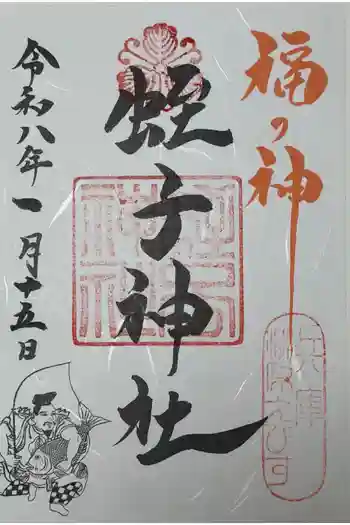 福の神
蛭子神社
令和八年一月十五日
兵庫